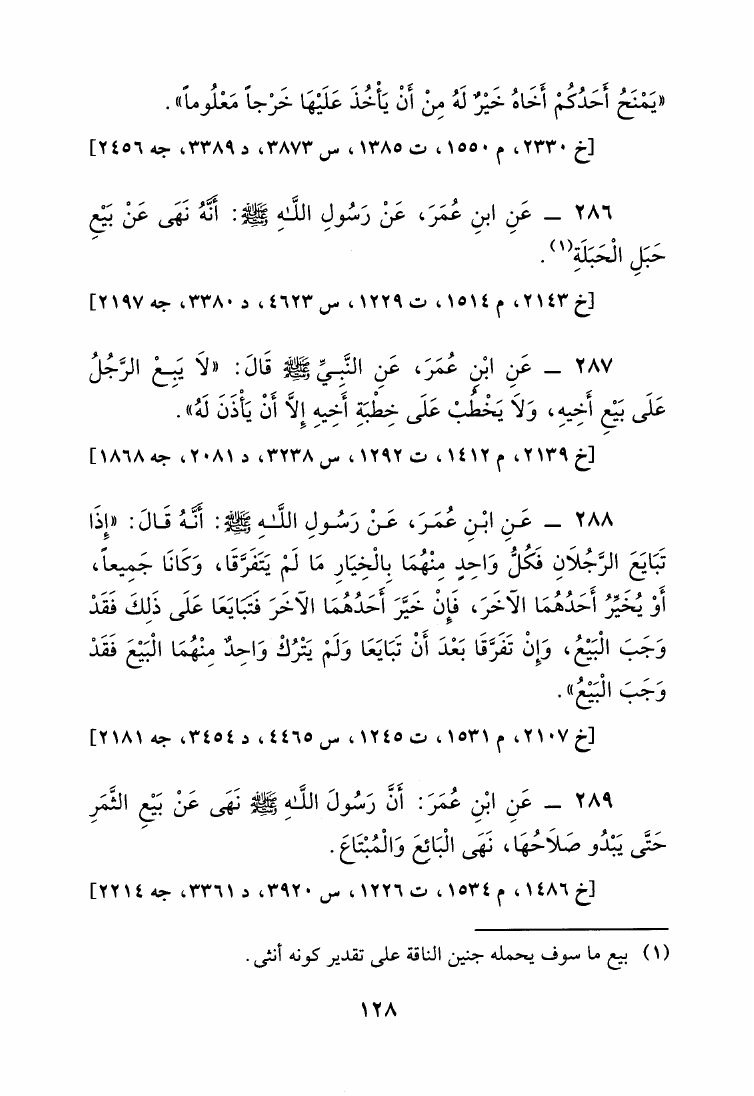 «يَمْنَحُ أَحَدُكُمْ أَخَاهُ خَيْرٌ لَهُ مِنْ أَنْ يَأْخُذَ عَلَيْهَا خَرْجاً مَعْلُوماً».
[خ ٢٣٣٠، م ١٥٥٠، ت ١٣٨٥، س ٣٨٧٣، د ٣٣٨٩، جه ٢٤٥٦]
٢٨٦ ــ عَنِ ابنِ عُمَرَ، عَنْ رَسُولِ اللَّـٰهِ ﷺ: أَنَّهُ نَهَى عَنْ بَيْعِ
حَبَلِ الْحَبَلَةِ(١).
[خ ٢١٤٣، م ١٥١٤، ت ١٢٢٩، س ٤٦٢٣، د ٣٣٨٠، جه ٢١٩٧]
٢٨٧ ــ عَنِ ابْنِ عُمَرَ، عَنِ النَّبِـيِّ ﷺ قَالَ: «لَا يَبِـعْ الرَّجُلُ
عَلَى بَيْعِ أَخِيهِ، وَلَا يَخْطُبْ عَلَى خِطْبَةِ أَخِيهِ إِلَّا أَنْ يَأْذَنَ لَهُ».
[خ ٢١٣٩، م ١٤١٢، ت ١٢٩٢، س ٣٢٣٨، د ٢٠٨١، جه ١٨٦٨]
٢٨٨ ــ عَـنِ ابْـنِ عُمَـرَ، عَـنْ رَسُـولِ اللَّـٰهِ ﷺ: أَنَّـهُ قَـالَ: «إِذَا
تَبَايَعَ الرَّجُلَانِ فَكُلُّ وَاحِدٍ مِنْهُمَا بِالْخِيَارِ مَا لَمْ يَتَفَرَّقَا، وَكَانَا جَمِيعاً،
أَوْ يُخَيِّرُ أَحَدُهُمَا الآخَرَ، فَإِنْ خَيَّرَ أَحَدُهُمَا الآخَرَ فَتَبَايَعَا عَلَى ذَلِكَ فَقَدْ
وَجَبَ الْبَيْعُ، وَإِنْ تَفَرَّقَا بَعْدَ أَنْ تَبَايَعَا وَلَمْ يَتْرُكْ وَاحِدٌ مِنْهُمَا الْبَيْعَ فَقَدْ
وَجَبَ الْبَيْعُ».
[خ ٢١٠٧، م ١٥٣١، ت ١٢٤٥، س ٤٤٦٥، د ٣٤٥٤، جه ٢١٨١]
٢٨٩ ــ عَنِ ابْنِ عُمَرَ: أَنَّ رَسُولَ اللَّـٰهِ ﷺ نَهَى عَنْ بَيْعِ الثَّمَرِ
حَتَّى يَبْدُو صَلَاحُهَا، نَهَى الْبَائِعَ وَالْمُبْتَاعَ.
[خ ١٤٨٦، م ١٥٣٤، ت ١٢٢٦، س ٣٩٢٠، د ٣٣٦١، جه ٢٢١٤]
(١) بيع ما سوف يحمله جنين الناقة على تقدير كونه أنثى.
١٢٨